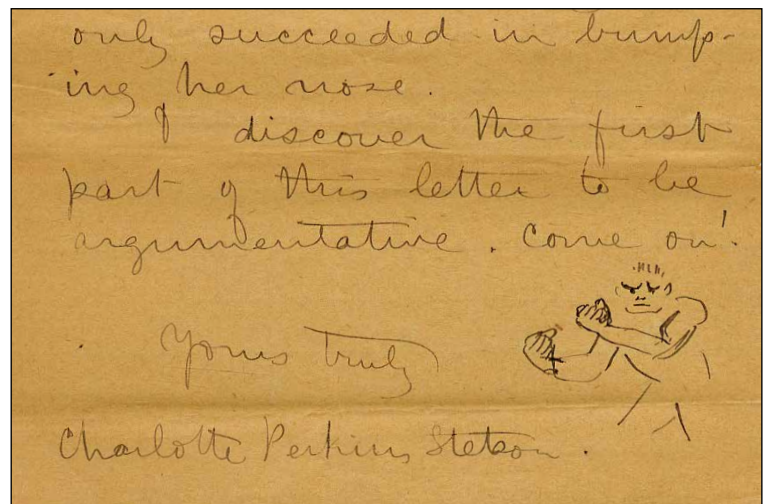 only succeeded in bump-
ing her nose.
I discover the first
part of this letter to be
argumentative. Come on!
Yours truly
Charlotte Perkins Stetson.